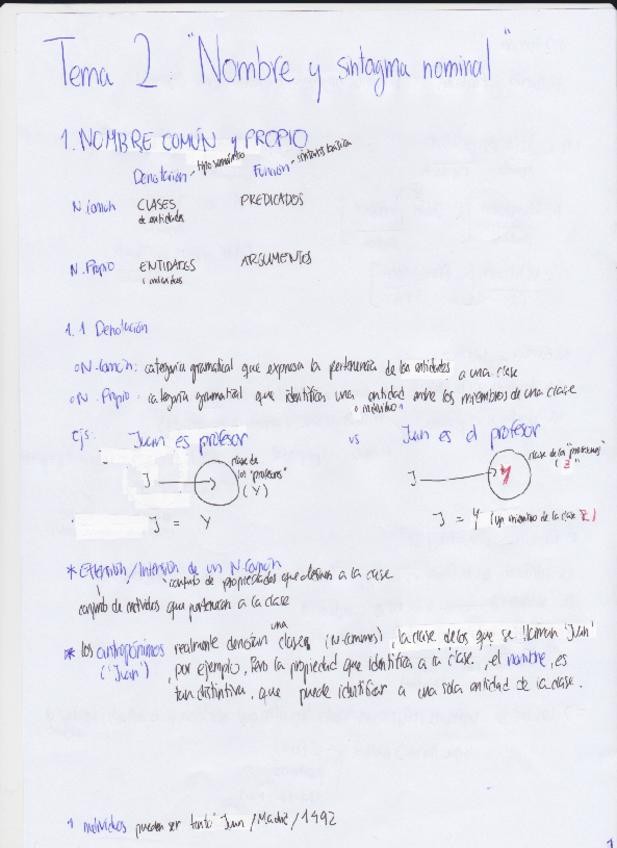 Tema 2 "Nombre y sintagma nominal"
1. NOMBRE COMÚN y PROPIO
Denotación - tipo semántico Función - sintaxis básica
N. Común CLASES de entidades PREDICADOS
N. Propio ENTIDADES ARGUMENTOS
1.1 Denotación
N. Común: categoría gramatical que expresa la pertenencia de las entidades a una clase
N. Propio: categoría gramatical que identifica una entidad entre los miembros de una clase
o individuo
Ejs: Juan es profesor vs Juan es el profesor
clase de los "profesores" (Y)
J
clase de los "profesores" ("Z")
J Y
J = Y
J = Y (un miembro de la clase Z)
* Extensión/Intensión de un N. Común
conjunto de propiedades que definen a la clase
conjunto de individuos que pertenecen a la clase
* los antropónimos realmente denotan una clase (N. comunes), la clase de los que se llaman 'Juan'
('Juan') , por ejemplo. Pero la propiedad que identifica a la clase, el nombre, es
tan distintiva, que puede identificar a una sola entidad de la clase.
1 individuos pueden ser tanto Juan/Madrid/1492
1